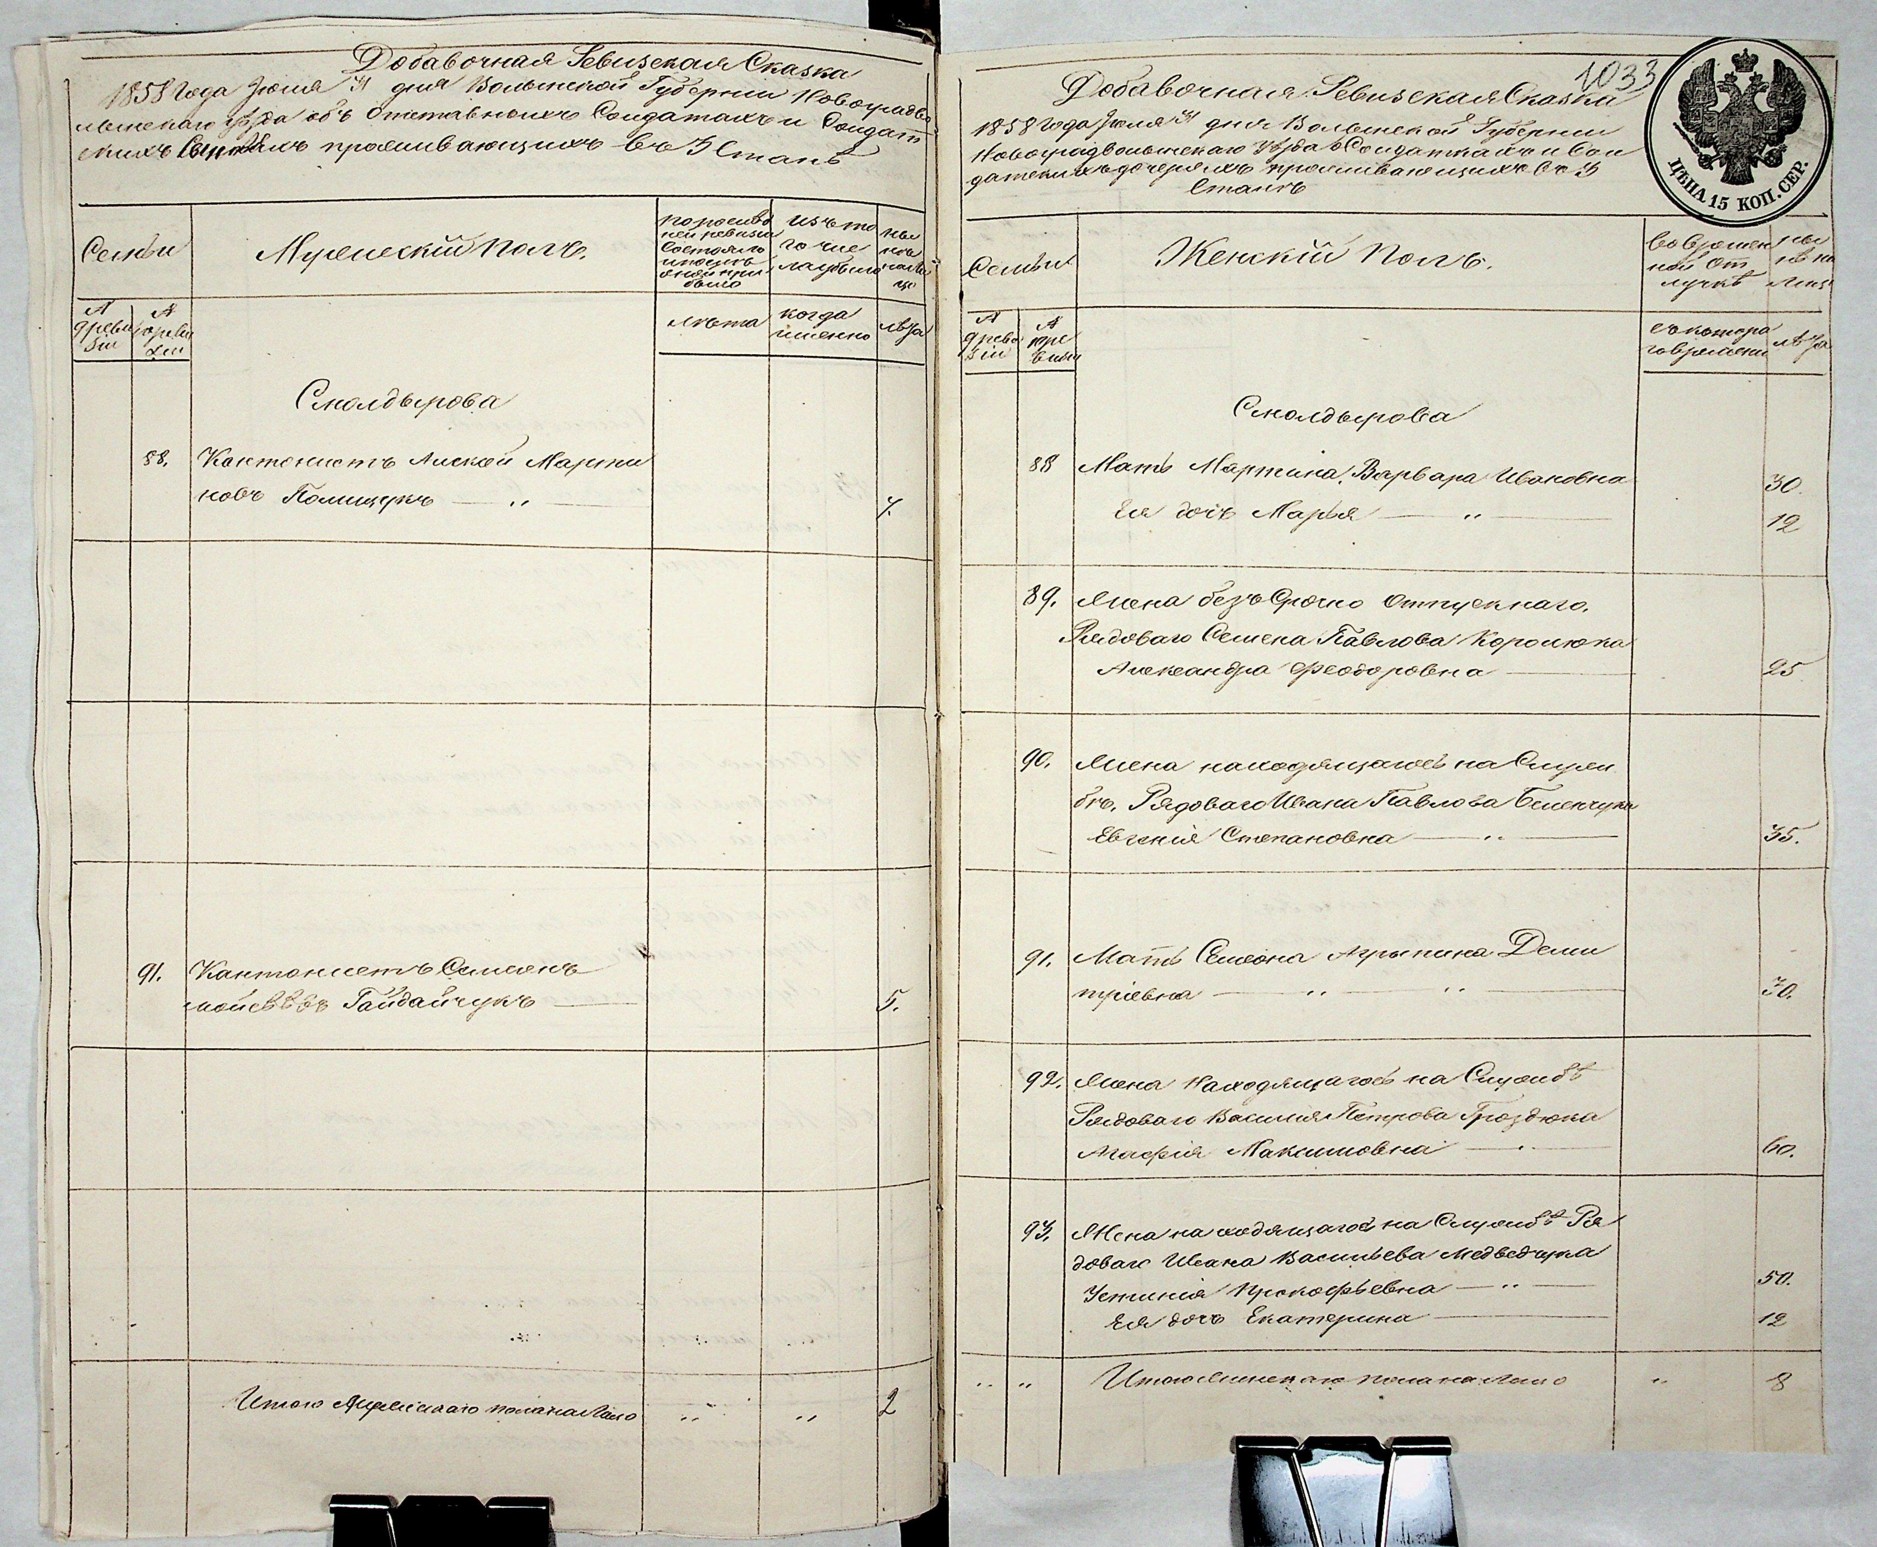 Добавочная Ревизская Сказка
1858 Года Июля 31 дня Волынской Губерніи Новоградво
лынскаго уѣзда объ Отставныхъ Солдатахъ и Солдат
скихъ проживающихъ въ 3 Станѣ
Семьи
Мужескій Полъ.
по послѣд
ней ревизіи
Состояло
и послѣ
оной при
было
Изъ то
го чис
ла убыло
Ны
нѣ на
ли
цо
№
древи
зіи
№
поревизіи
Лѣта
когда
именно
лѣта
Смолдырова
88. Кантонистъ Алексѣй Марти
новъ Полищукъ — „ — 7.
91. Кантонистъ Семіонъ
Мойсѣевъ Гайдайчукъ — 5.
Итого Мужескаго пола на Лицо „ „ 2
1033
Добавочная Ревизская Сказка
1858 Года Июля 31 дня Волынской Губерніи
Новоградволынскаго уѣзда о Солдаткахъ и Сол
датскихъ дочеряхъ проживающихъ въ 3
Станѣ
ЦѢНА 15 КОП. СЕР.
Семьи
Женскій Полъ.
Во Времен
ной От
лучкѣ
Ны
нѣ на
лицо
№
древи
зіи
№
съ котора
го времени
лѣта
Смолдырова
88 Мать Мартина, Варвара Ивановна 30.
Ея дочь Марья — „ — 12
89. Жена безъ Срочно Отпускнаго.
Рядоваго Семена Павлова Королюка
Александра Феодоровна — 25
90. Жена находящагось на Служ
бѣ, Рядоваго Ивана Павлова
Евгенія Степановна — „ — 35.
91. Мать Семіона Агрыпина Дми
тріевна — „ — „ — 30.
92. Жена Находящагось на Службѣ
Рядоваго Василія Петрова Гроздюка
Агафія Максимовна — 60.
93. Жена находящагось на Службѣ Ря
доваго Ивана Васильева Медведчука
Устинія Прокофьевна — „ — 50.
Ея дочь Екатерина — 12
„ „ Итого Женскаго пола на Лицо „ 8